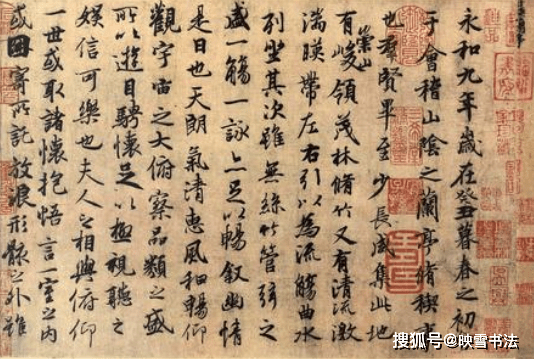 永和九年歲在癸丑暮春之初
于會稽山陰之蘭亭脩稧
也羣賢畢至少長咸集此地
有崇山峻領茂林脩竹又有清流激
湍暎帶左右引以為流觴曲水
列坐其次雖無絲竹管弦之
盛一觴一詠亦足以暢叙幽情
是日也天朗氣清惠風和暢仰
觀宇宙之大俯察品類之盛
所以遊目騁懷足以極視聽之
娛信可樂也夫人之相與俯仰
一世或取諸懷抱悟言一室之內
或因寄所託放浪形骸之外雖
搜狐号@映雪书法